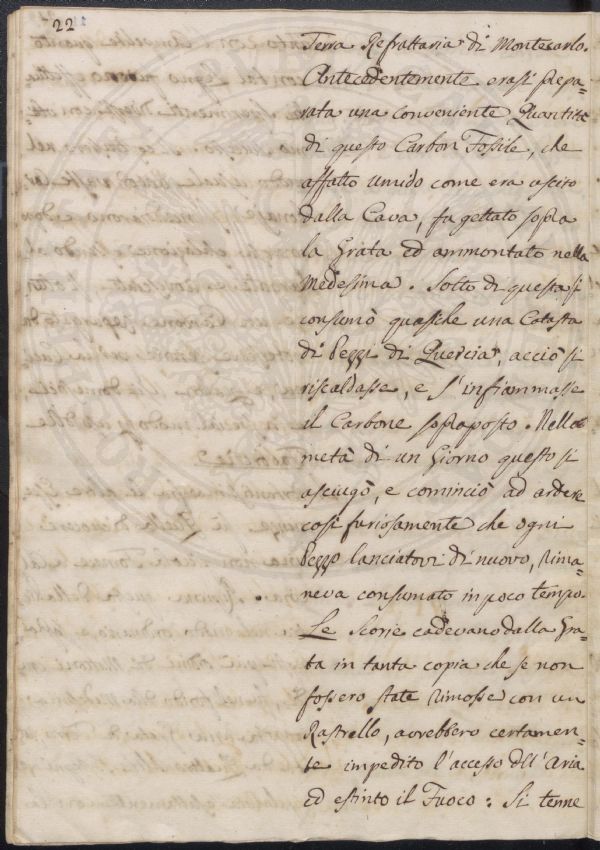 22
Terra Refrattaria di Montecarlo.
Antecedentemente erasi prepa=
rata una conveniente Quantità
di questo Carbon Fossile, che
affatto umido come era uscito
dalla Cava, fu gettato sopra
la Grata ed ammontato nella
Medesima. Sotto di questa si
consumò quasiche una Catasta
di Pezzi di Quercia, acciò si
riscaldasse, e s'infiammasse
il Carbone sopraposto. Nella
metà di un Giorno questo si
asciugò, e cominciò ad ardere
così furiosamente che ogni
Pezzo lanciatovi di nuovo, rima=
neva consumato in poco tempo.
Le Scorie cadevano dalla Gra=
ta in tanta copia che se non
fossero state rimosse con un
Rastrello, avrebbero certamen=
te impedito l'accesso dell'Aria
ed estinto il Fuoco: Si tenne